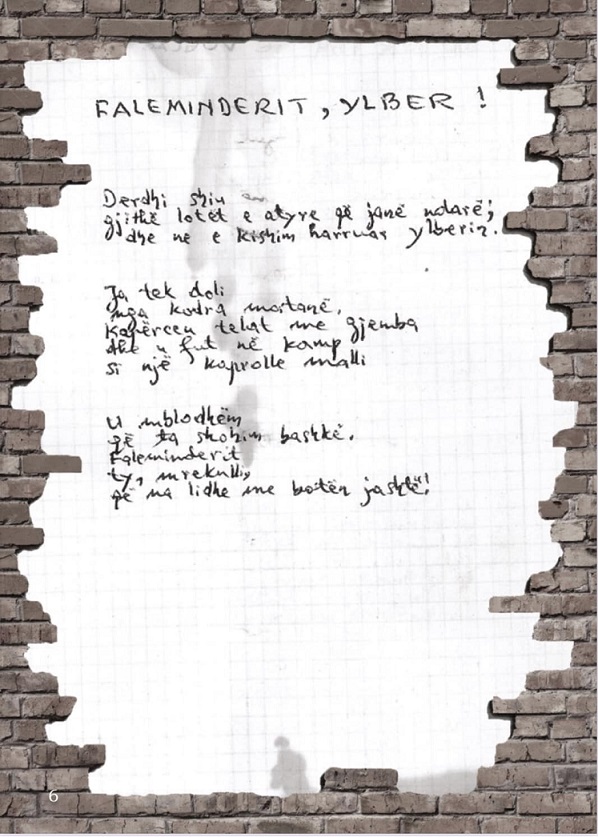 FALEMINDERIT, YLBER !
Derdhi shiu
gjithë lotët e atyre që janë ndarë;
dhe ne e kishim harruar ylberin.
Ja tek doli
nga kodra matanë,
Kapërceu telat me gjemba
dhe u fut në kamp
si një kaprolle malli
U mblodhëm
që ta shohim bashkë.
Faleminderit
ty, mrekulli,
që na lidhe me botën jashtë!
6